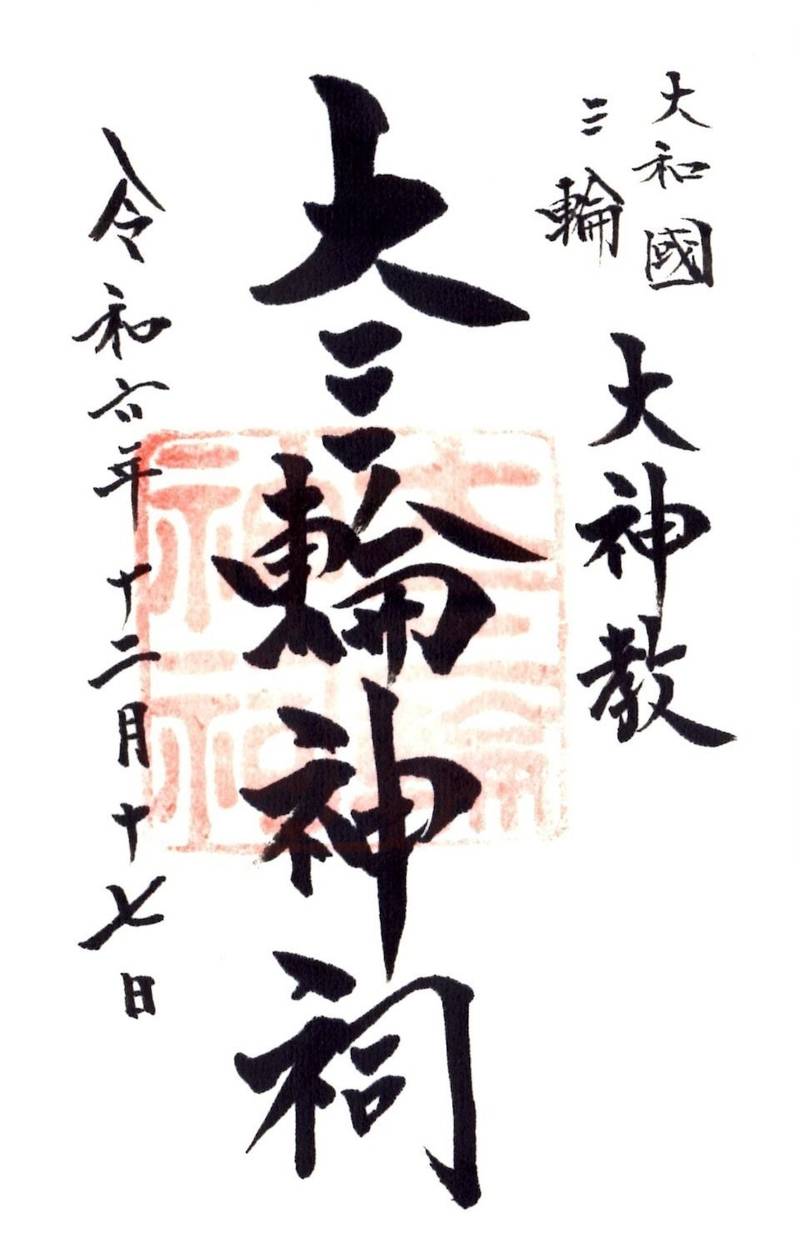 大和國
三輪
大神教
大三輪神祠
令和六年十二月十七日